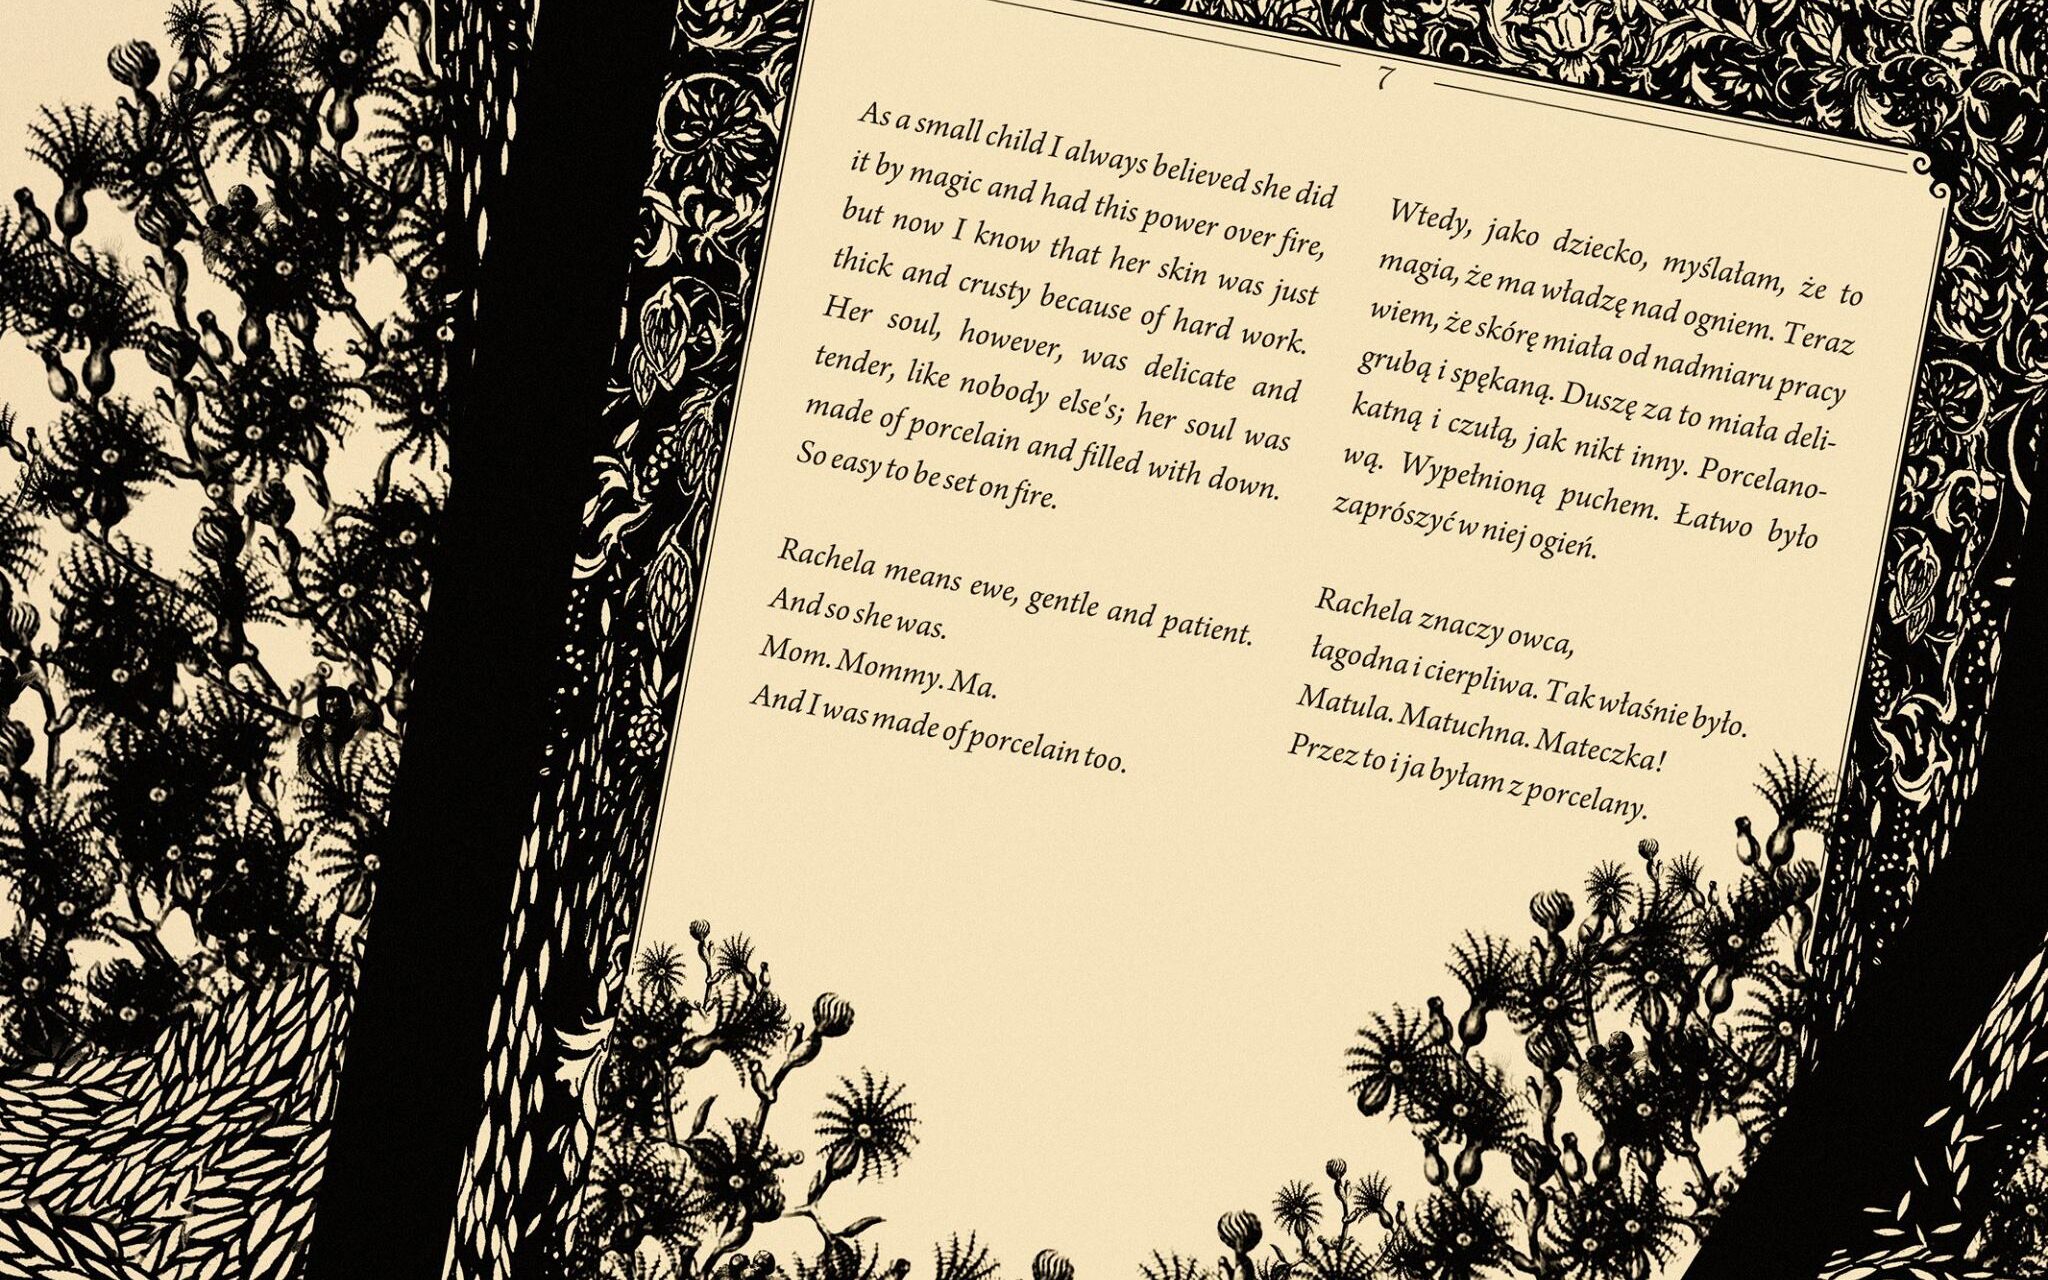 7
As a small child I always believed she did
it by magic and had this power over fire,
but now I know that her skin was just
thick and crusty because of hard work.
Her soul, however, was delicate and
tender, like nobody else's; her soul was
made of porcelain and filled with down.
So easy to be set on fire.
Rachela means ewe, gentle and patient.
And so she was.
Mom. Mommy. Ma.
And I was made of porcelain too.
Wtedy, jako dziecko, myślałam, że to
magia, że ma władzę nad ogniem. Teraz
wiem, że skórę miała od nadmiaru pracy
grubą i spękaną. Duszę za to miała deli-
katną i czułą, jak nikt inny. Porcelano-
wą. Wypełnioną puchem. Łatwo było
zaprószyć w niej ogień.
Rachela znaczy owca,
łagodna i cierpliwa. Tak właśnie było.
Matula. Matuchna. Mateczka!
Przez to i ja byłam z porcelany.